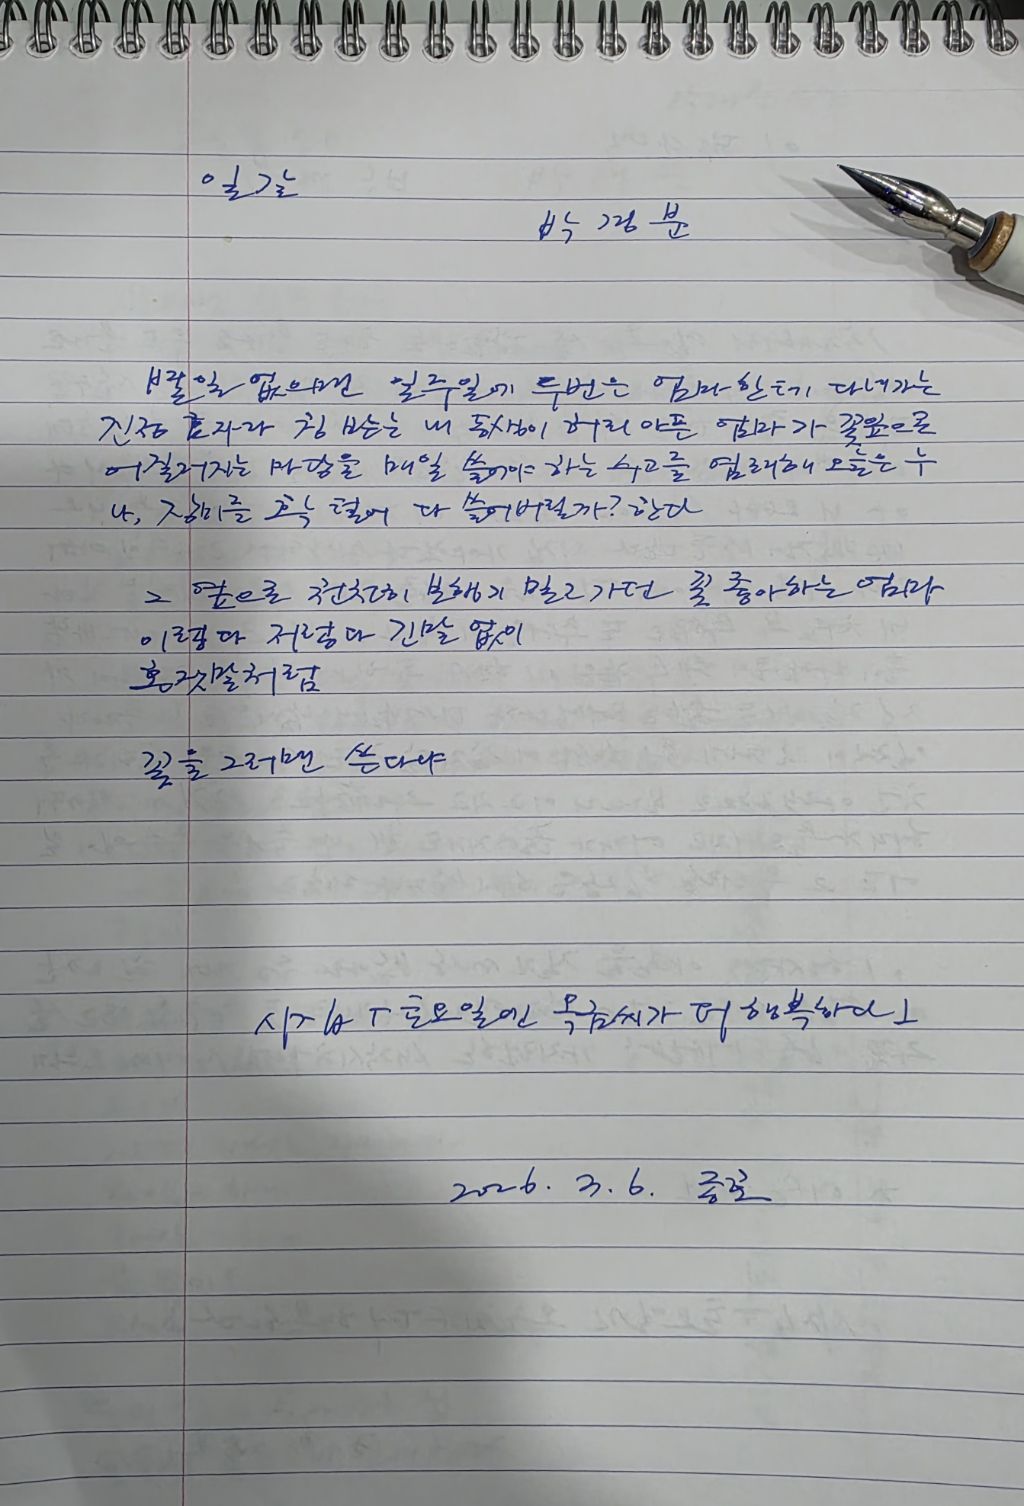 일갈
박경분
별일 없으면 일주일에 두번은 엄마한테 다녀가는
진정 효자라 칭 받는 내 동생이 허리 아픈 엄마가 꽃잎으로
어질러지는 마당을 매일 쓸어야 하는 수고를 염려해 오늘은 누
나, 장미를 호숙 털어 다 쓸어버릴까? 한다
그 옆으로 천천히 보행기 밀고가던 꽃 좋아하는 엄마
이렇다 저렇다 긴말 없이
혼잣말처럼
꽃을 그러면 쓴다냐
시집 「토요일엔 목금씨가 더 행복하다」
2026. 3. 6. 종로